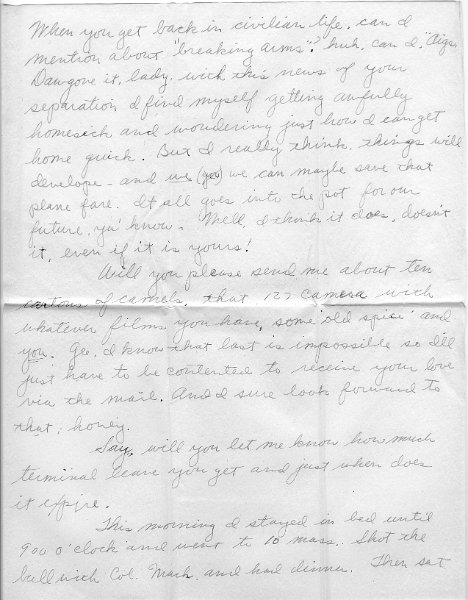 When you get back in civilian life, can I
mention about "breaking arms"? huh, can I,
Dawgone it, lady, with this news of your
separation I find myself getting awfully
homesick and wondering just how I can get
home quick. But I really think things will
develope - and we (yes) we can maybe save that
plane fare. It all goes into the pot for our
future, ya' know. Well, I think it does, doesn't
it, even if it is yours!
Will you please send me about ten
cartons of camels, that 127 camera with
whatever films you have, some 'old spice' and
you. Geo, I know that last is impossible so I'll
just have to be contented to receive your love
via the mail. And I sure look forward to
that, honey.
Say, will you let me know how much
terminal leave you get and just when does
it expire.
This morning I stayed in bed until
900 o'clock and went to 10 mass. Shot the
bull with Col. Mark, and had dinner. Then sat